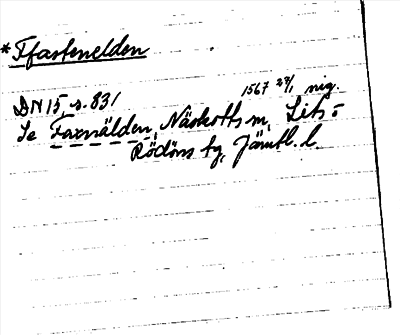 *Tfastenelden
DN 15, s. 831 1567 27/1 nig.
Se Faxnälden, Näskotts sn, Lits o
Rödöns tg, Jämtl. l.